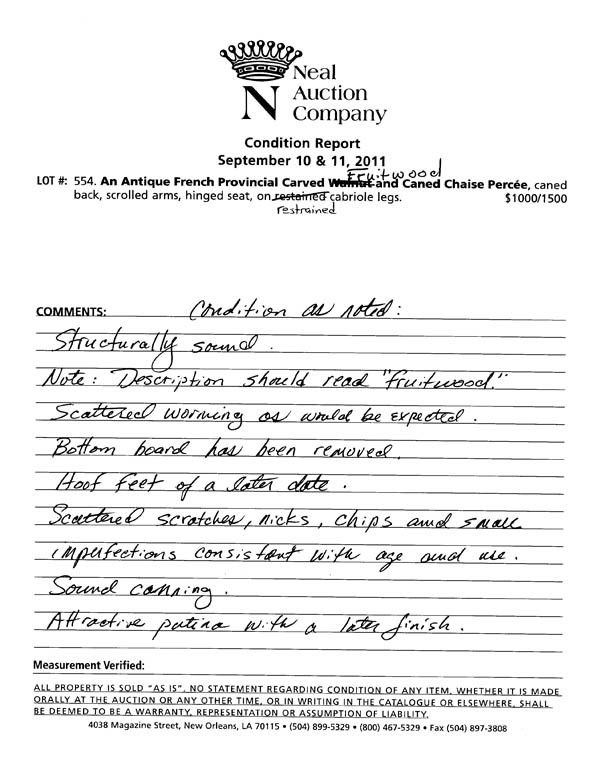 Neal
Auction
Company
N
Condition Report
September 10 & 11, 2011
Fruitwood
LOT #: 554. An Antique French Provincial Carved Walnut and Caned Chaise Percée, caned
back, scrolled arms, hinged seat, on restained cabriole legs. $1000/1500
restrained
COMMENTS: Condition as noted:
Structurally sound.
Note: Description should read "fruitwood."
Scattered worming as would be expected.
Bottom board has been removed.
Hoof feet of a later date.
Scattered scratches, nicks, chips and small
imperfections consistant with age and use.
Sound canning.
Attractive patina with a later finish.
Measurement Verified:
ALL PROPERTY IS SOLD "AS IS", NO STATEMENT REGARDING CONDITION OF ANY ITEM, WHETHER IT IS MADE
ORALLY AT THE AUCTION OR ANY OTHER TIME, OR IN WRITING IN THE CATALOGUE OR ELSEWHERE, SHALL
BE DEEMED TO BE A WARRANTY, REPRESENTATION OR ASSUMPTION OF LIABILITY.
4038 Magazine Street, New Orleans, LA 70115 • (504) 899-5329 • (800) 467-5329 • Fax (504) 897-3808